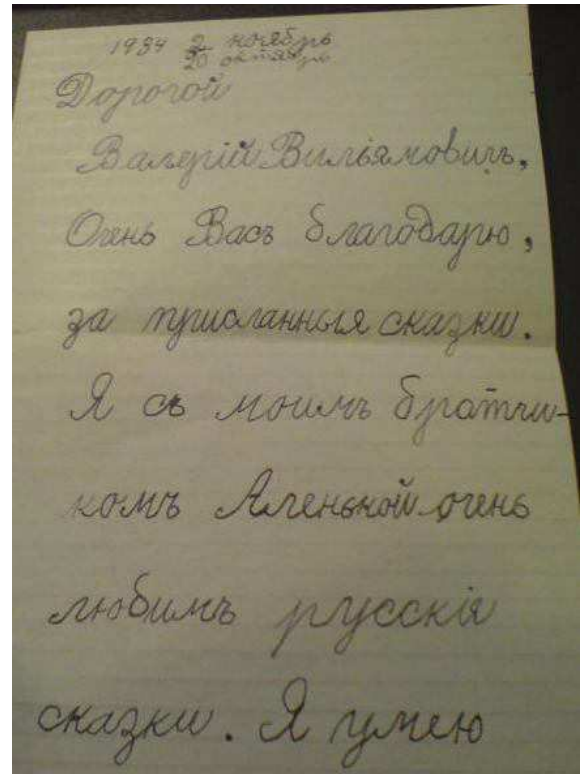 1934 2 ноябрь
20 октябрь
Дорогой
Валерій Вильямовичъ,
Очень Васъ благодарю,
за присланныя сказки.
Я съ моимъ братчи-
комъ Аленькой очень
любимъ русскія
сказки. Я умею